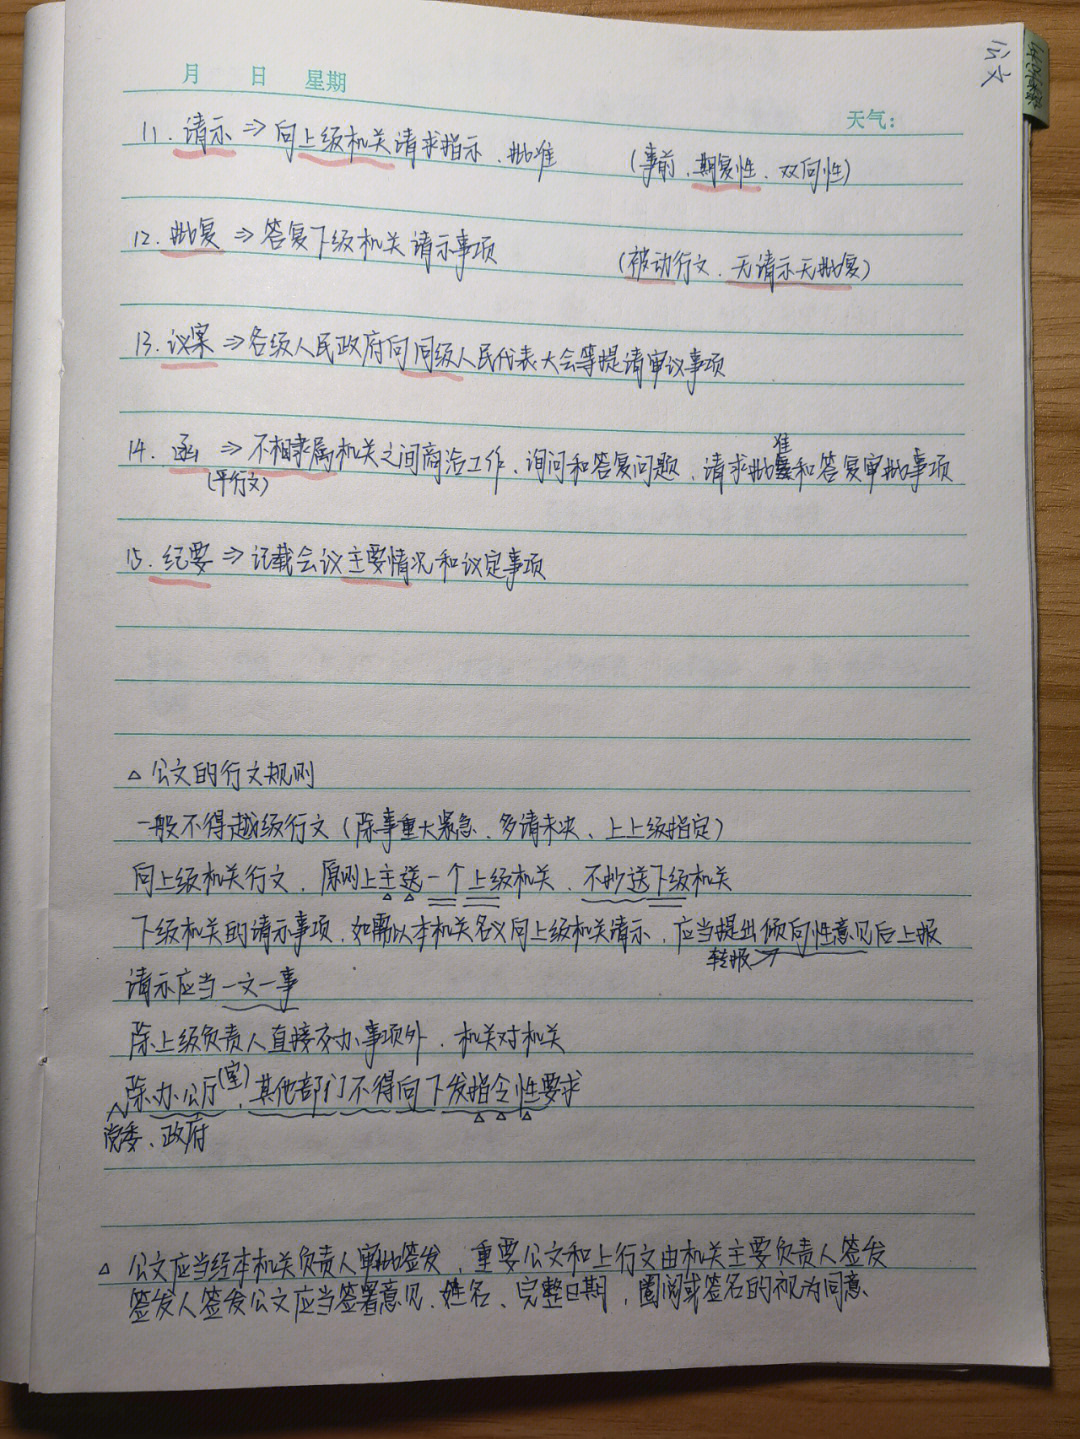 公文
月 日 星期
天气:
11. 请示 ⇒ 向上级机关请求指示、批准 (事前、期复性、双向性)
12. 批复 ⇒ 答复下级机关请示事项 (被动行文、无请示无批复)
13. 议案 ⇒ 各级人民政府向同级人民代表大会等提请审议事项
14. 函 ⇒ 不相隶属机关之间商洽工作、询问和答复问题、请求批准和答复审批事项
(平行文)
15. 纪要 ⇒ 记载会议主要情况和议定事项
△ 公文的行文规则
一般不得越级行文(除事重大紧急、多请未决、上上级指定)
向上级机关行文,原则上主送一个上级机关、不抄送下级机关
下级机关的请示事项,如需以本机关名义向上级机关请示,应当提出倾向性意见后上报
转报
请示应当一文一事
除上级负责人直接交办事项外,机关对机关
除办公厅(室),其他部门不得向下发指令性要求
党委、政府
△ 公文应当经本机关负责人审批签发,重要公文和上行文由机关主要负责人签发
签发人签发公文应当签署意见、姓名、完整日期,圈阅或签名的视为同意